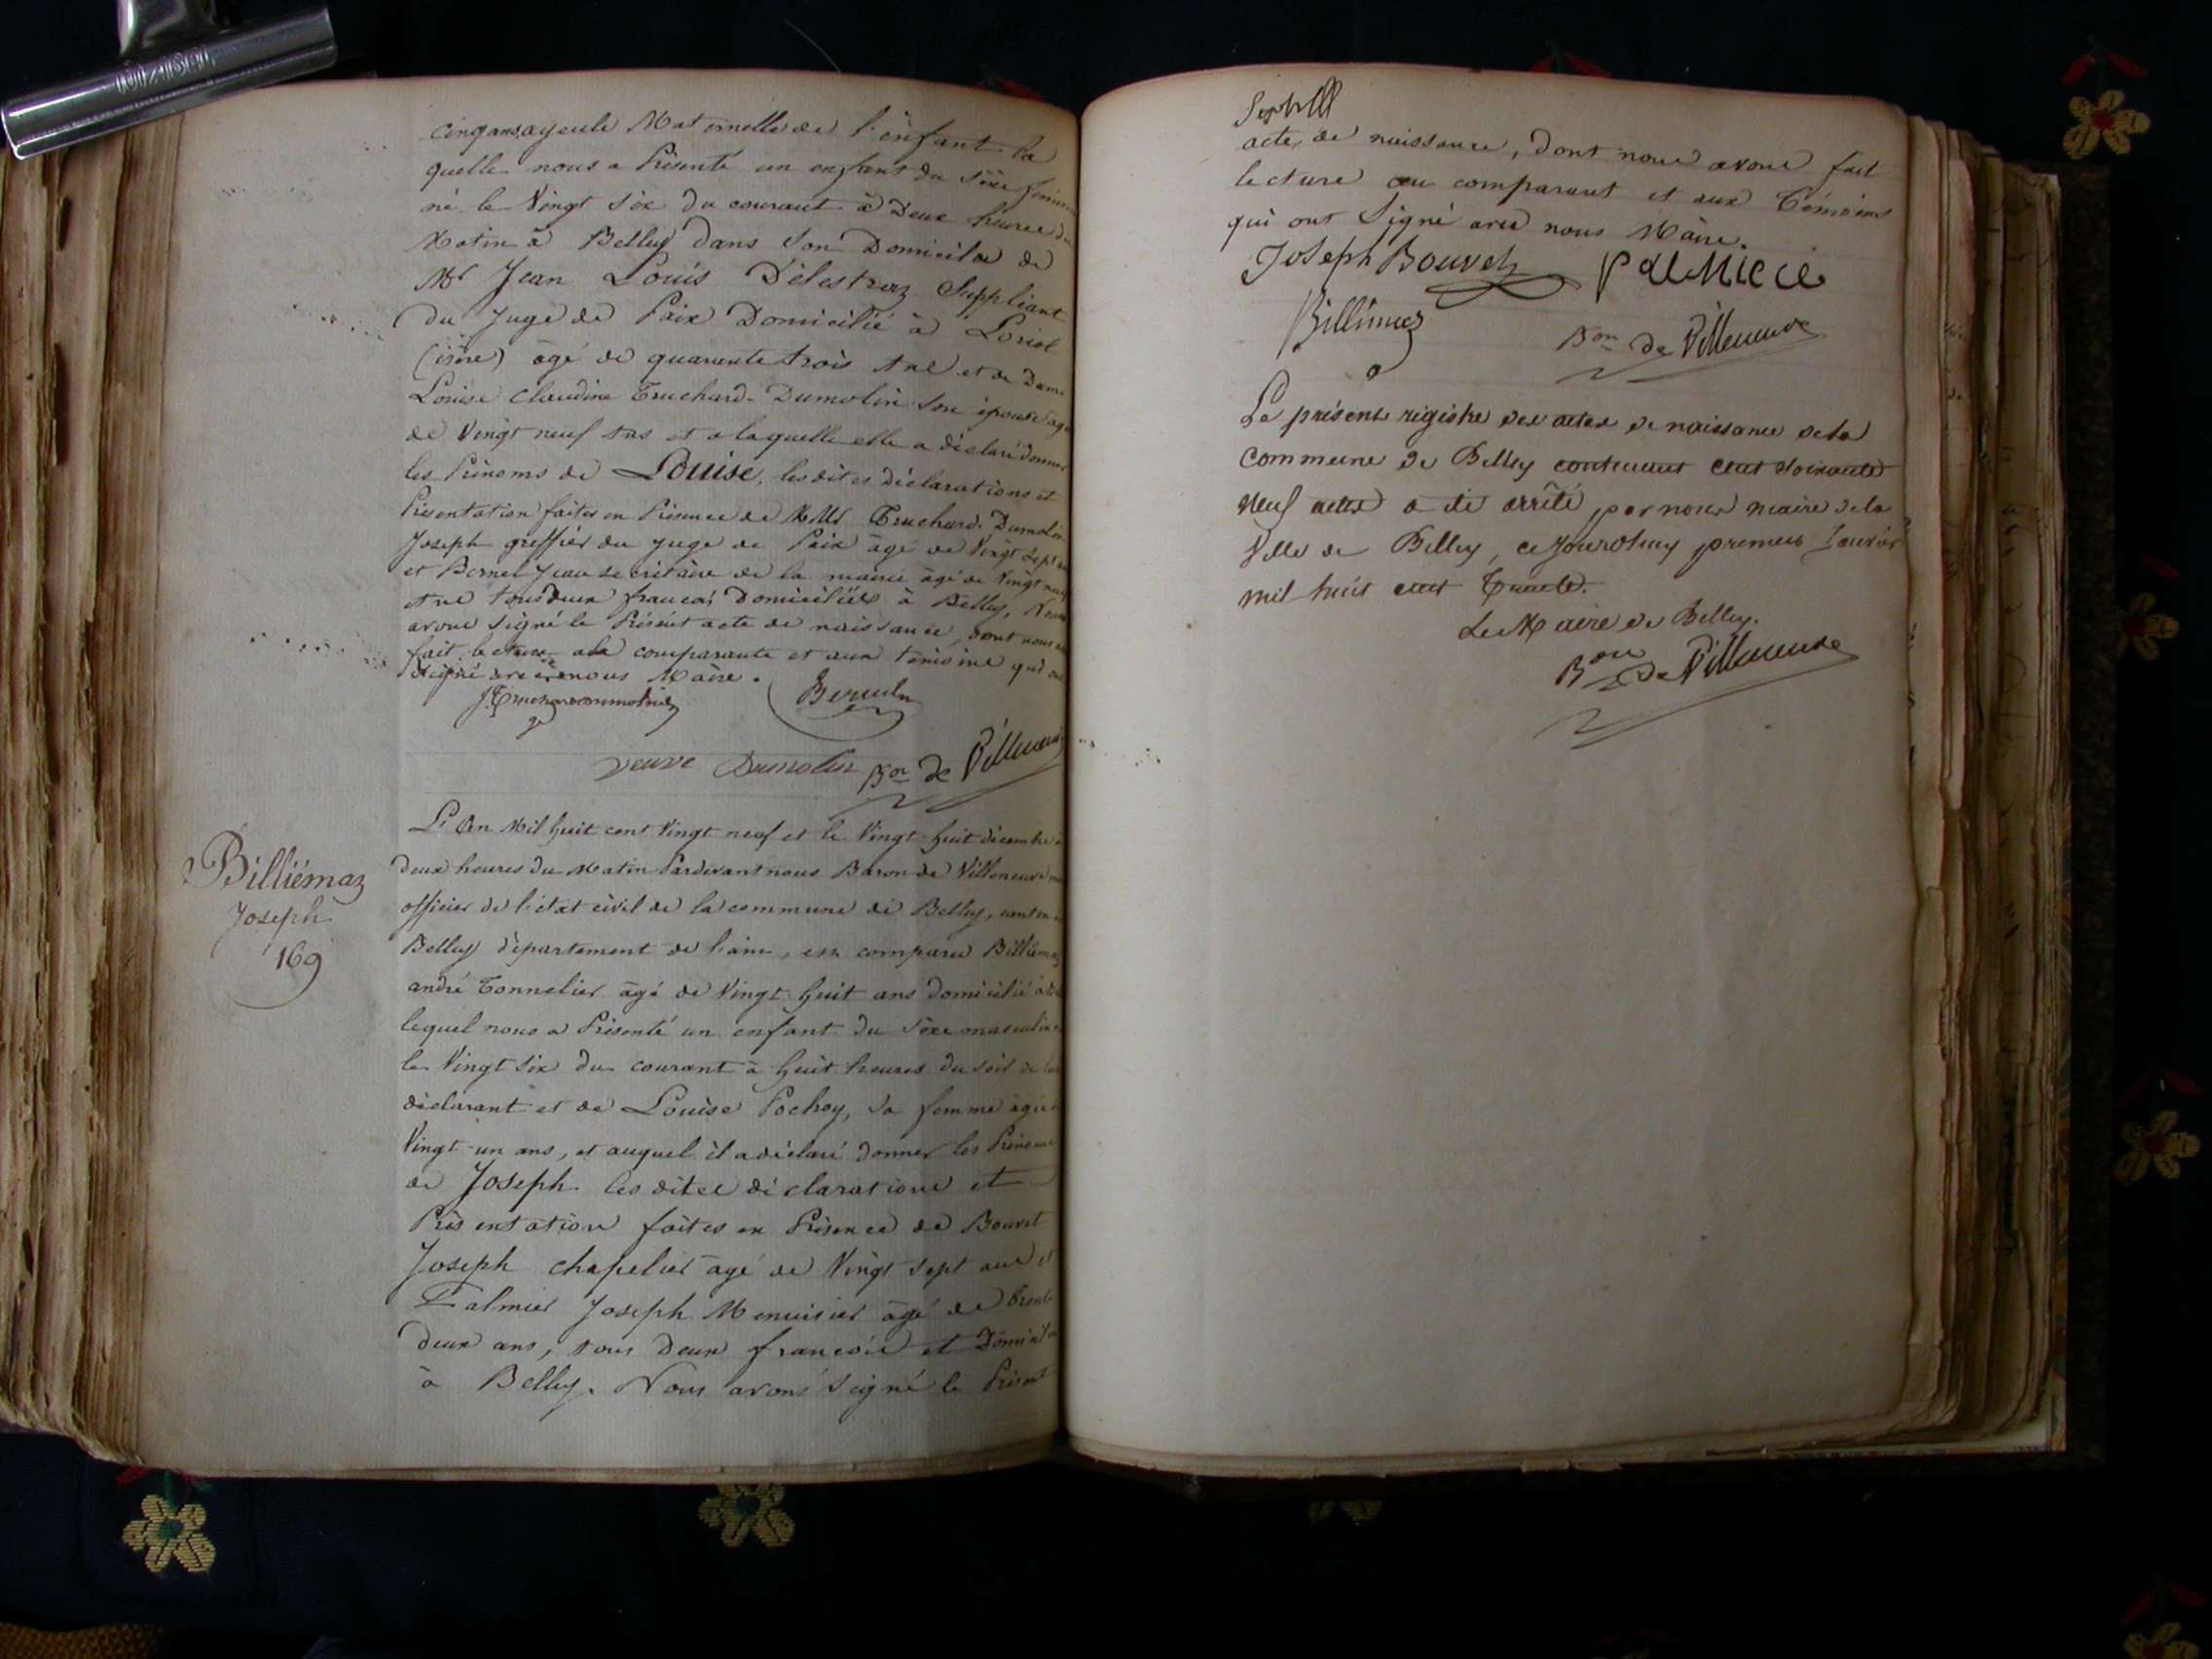 cinq ans, ayeule Maternelle de l'enfant la
quelle nous a Présenté un enfant du sèxe féminin
né le Vingt six du courant à Deux heures du
Matin à Belley dans son Domicile de
Mr Jean Louis Délestraz Suppliant
du Juge de Paix Domicilié à
(isère) âgé de quarante trois Ans et de Dame
Louise Claudine Truchard-Dumolin son épouse agée
de Vingt neuf Ans et a laquelle elle a déclaré donner
les Prénoms de Louise, les dites déclarations et
Présentation faites en Présence de MMrs Truchard-Dumolin
Joseph greffier du Juge de Paix âgé de Vingt sept ans
et Bernel Jean secrétaire de la mairie âgé de Vingt neuf
ans tous deux francais Domiciliés à Belley, Nous
avons signé le Présent acte de naissance, dont nous avons
fait lecture a la comparante et aux témoins qui ont
signé avec nous Maire.
veuve Dumolin Bon de Villeneuve
Billiémaz
Joseph
169
L'An Mil huit cent Vingt neuf et le Vingt-huit décembre à
deux heures du Matin Pardevant nous Baron de Villeneuve
officier de l'état civil de la commune de Belley, canton de
Belley département de l'ain, est comparu Billiémaz
andré Tonnelier âgé de Vingt-huit ans domicilié
lequel nous a Présenté un enfant du Sèxe masculin
le Vingt six du courant à huit heures du soir de lui
déclarant et de Louise Pochoy, sa femme agée
Vingt-un ans, et auquel il a déclaré donner les Prénoms
de Joseph les dites déclarations et
Présentation faites en Présence de Bouvet
Joseph chapelier âgé de Vingt sept ans et
Palmier Joseph Menuisier âgé de trente
deux ans, tous Deux francais et Domiciliés
à Belley. Nous avons signé le Présent
acte de naissance, dont nous avons fait
lecture au comparant et aux Témoins
qui ont Signé avec nous Maire.
Joseph Bouvet Palmier
Billiémaz
Bon de Villeneuve
Le présent régistre des actes de naissance de la
commune de Belley contenant cent soixante
neuf actes a été arrêté par nous maire de la
Ville de Belley, ce jourd'huy premier Janvier
mil huit cent Trente.
Le Maire de Belley.
Bon de Villeneuve